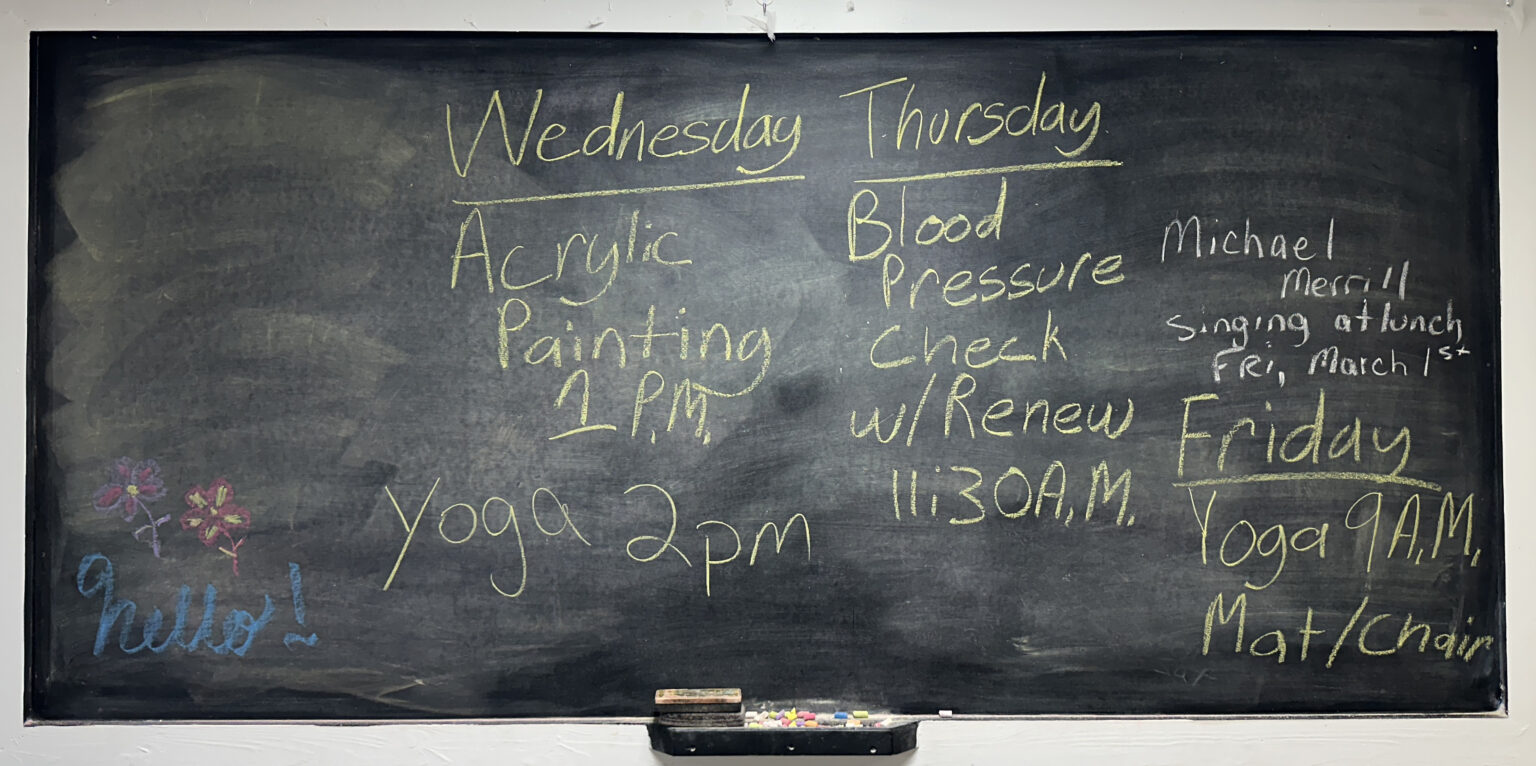 Wednesday
Acrylic
Painting
1 P.M.
Yoga 2pm
Thursday
Blood
Pressure
Check
w/Renew
11:30A.M.
Michael
Merrill
singing at lunch
FRi, March 1st
Friday
Yoga 9A.M.
Mat/Chair
hello!